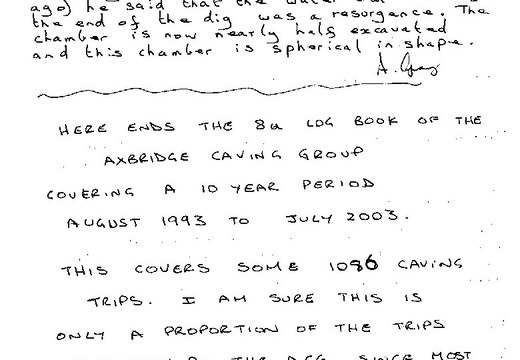 ago) he said that the water
the end of the dig was a resurgence. The
chamber is now nearly half excavated
and this chamber is spherical in shape.
A. Gray
HERE ENDS THE 8th LOG BOOK OF THE
AXBRIDGE CAVING GROUP
COVERING A 10 YEAR PERIOD
AUGUST 1993 TO JULY 2003.
THIS COVERS SOME 1086 CAVING
TRIPS. I AM SURE THIS IS
ONLY A PROPORTION OF THE TRIPS
THE ACG, SINCE MOST